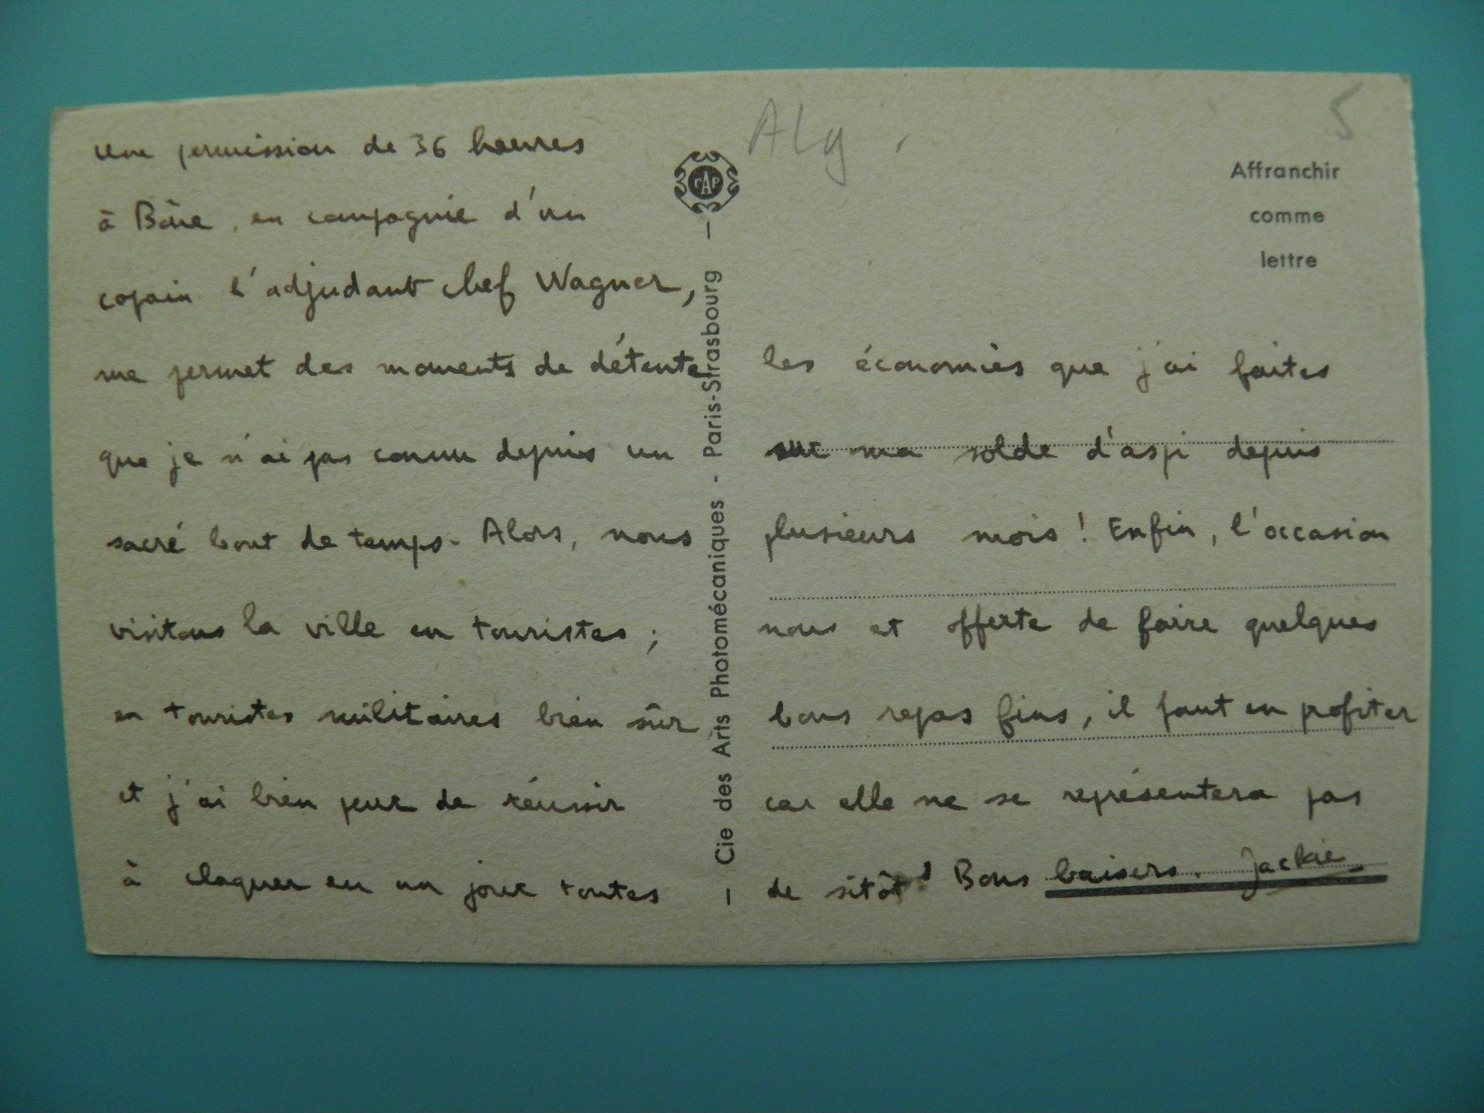 une permission de 36 heures
à Bône, en compagnie d'un
copain l'adjudant chef Wagner,
me permet des moments de détente
que je n'ai pas connu depuis un
sacré bout de temps. Alors, nous
visitons la ville en touristes ;
en touristes militaires bien sûr,
et j'ai bien peur de réussir
à claquer en un jour toutes
— Cie des Arts Photomécaniques - Paris-Strasbourg —
CAP
Alg.
5
Affranchir
comme
lettre
les économies que j'ai faites
sur ma solde d'aspi depuis
plusieurs mois ! Enfin, l'occasion
nous et offerte de faire quelques
bons repas fins, il faut en profiter
car elle ne se représentera pas
de sitôt ! Bons baisers. Jackie